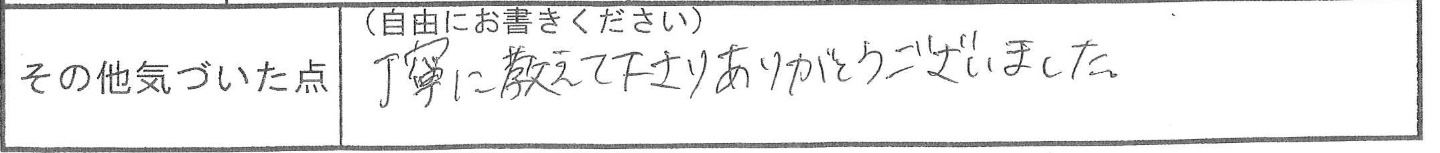 (自由にお書きください)
その他気づいた点
丁寧に教えて下さりありがとうございました。